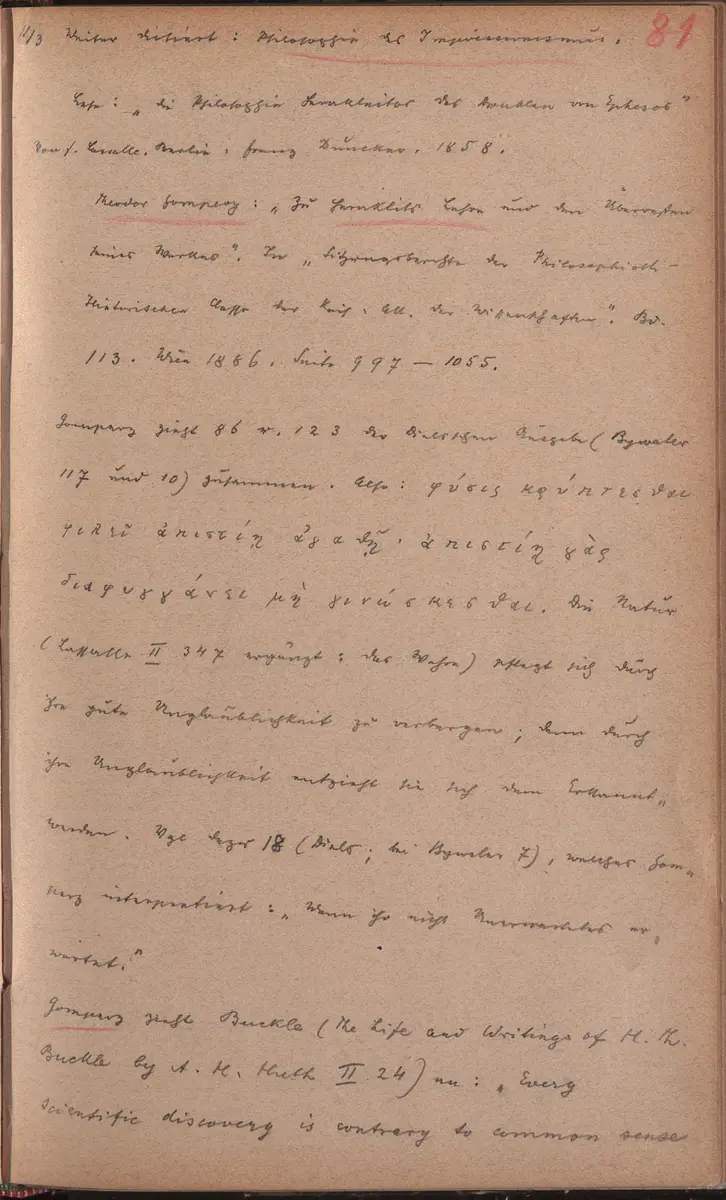 81
4/3 Weiter diktiert: Philosophie des Impressionismus.
Lese: „die Philosophie Herakleitos des Dunklen von Ephesos"
von F. Lasalle. Berlin, Franz Duncker. 1858.
Theodor Gomperz: „Zu Heraklits Lehre und den Überresten
seines Werkes". In „Sitzungsberichte der Philosophisch-
Historischen Classe der Kais. Ak. der Wissenschaften". Bd.
113. Wien 1886. Seite 997 — 1055.
Gomperz zieht 86 u. 123 der Dielsschen Ausgabe (Bywater
117 und 10) zusammen. Also: φύσις κρύπτεσθαι
φιλεῖ ἀπιστίῃ ἀγαθῇ· ἀπιστίῃ γὰρ
διαφυγγάνει μὴ γινώσκεσθαι. Die Natur
(Lassalle II 347 ergänzt: das Wahre) pflegt sich durch
ihre gute Unglaublichkeit zu verbergen; denn durch
ihre Unglaublichkeit entzieht sie sich dem Erkannt„
werden. Vgl dazu 18 (Diels; bei Bywater 7), welches Gom„
perz interpretiert: „Wenn ihr nicht Unerwartetes er„
wartet."
Gomperz zieht Buckle (The Life and Writings of H. Th.
Buckle by A. H. Huth II 24) an: „Every
scientific discovery is contrary to common sense